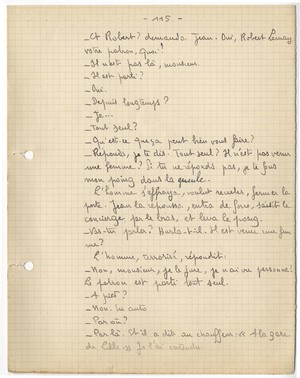 - 115 -
_Et Robert? demanda Jean. Oui, Robert Lemay
votre patron, quoi!
_Il n'est pas là, monsieur.
_Il est parti?
_Oui.
_Depuis longtemps?
_Je...
_Tout seul?
_Qu'est-ce que ça peut bien vous faire?
_Réponds, je te dis. Tout seul? Il n'est pas venu
une femme? Si tu ne réponds pas, je te fous
mon poing dans la gueule.
L'homme s'effraya, voulut reculer, fermer la
porte. Jean la repoussa, entra de force, saisit le
concierge par le bras, et leva le poing.
_Vas-tu parler? hurla-t-il. Il est venu une fem
me?
L'homme, terrorisé, répondit:
_Non, monsieur, je le jure, je n'ai vu personne!
Le patron est parti tout seul.
_A pied?
_Non. En auto
_Par où?
_Par là. Et il a dit au chauffeur: « A la gare
de Lille » Je l'ai entendu.